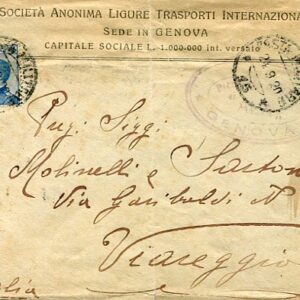 SOCIETÀ ANONIMA LIGURE TRASPORTI INTERNAZIONA
SEDE IN GENOVA
CAPITALE SOCIALE L. 1.000.000 int. versato
GENOVA
Pregi. Siggi.
Molinelli e Sartor
Via Garibaldi N
Viareggio
alia